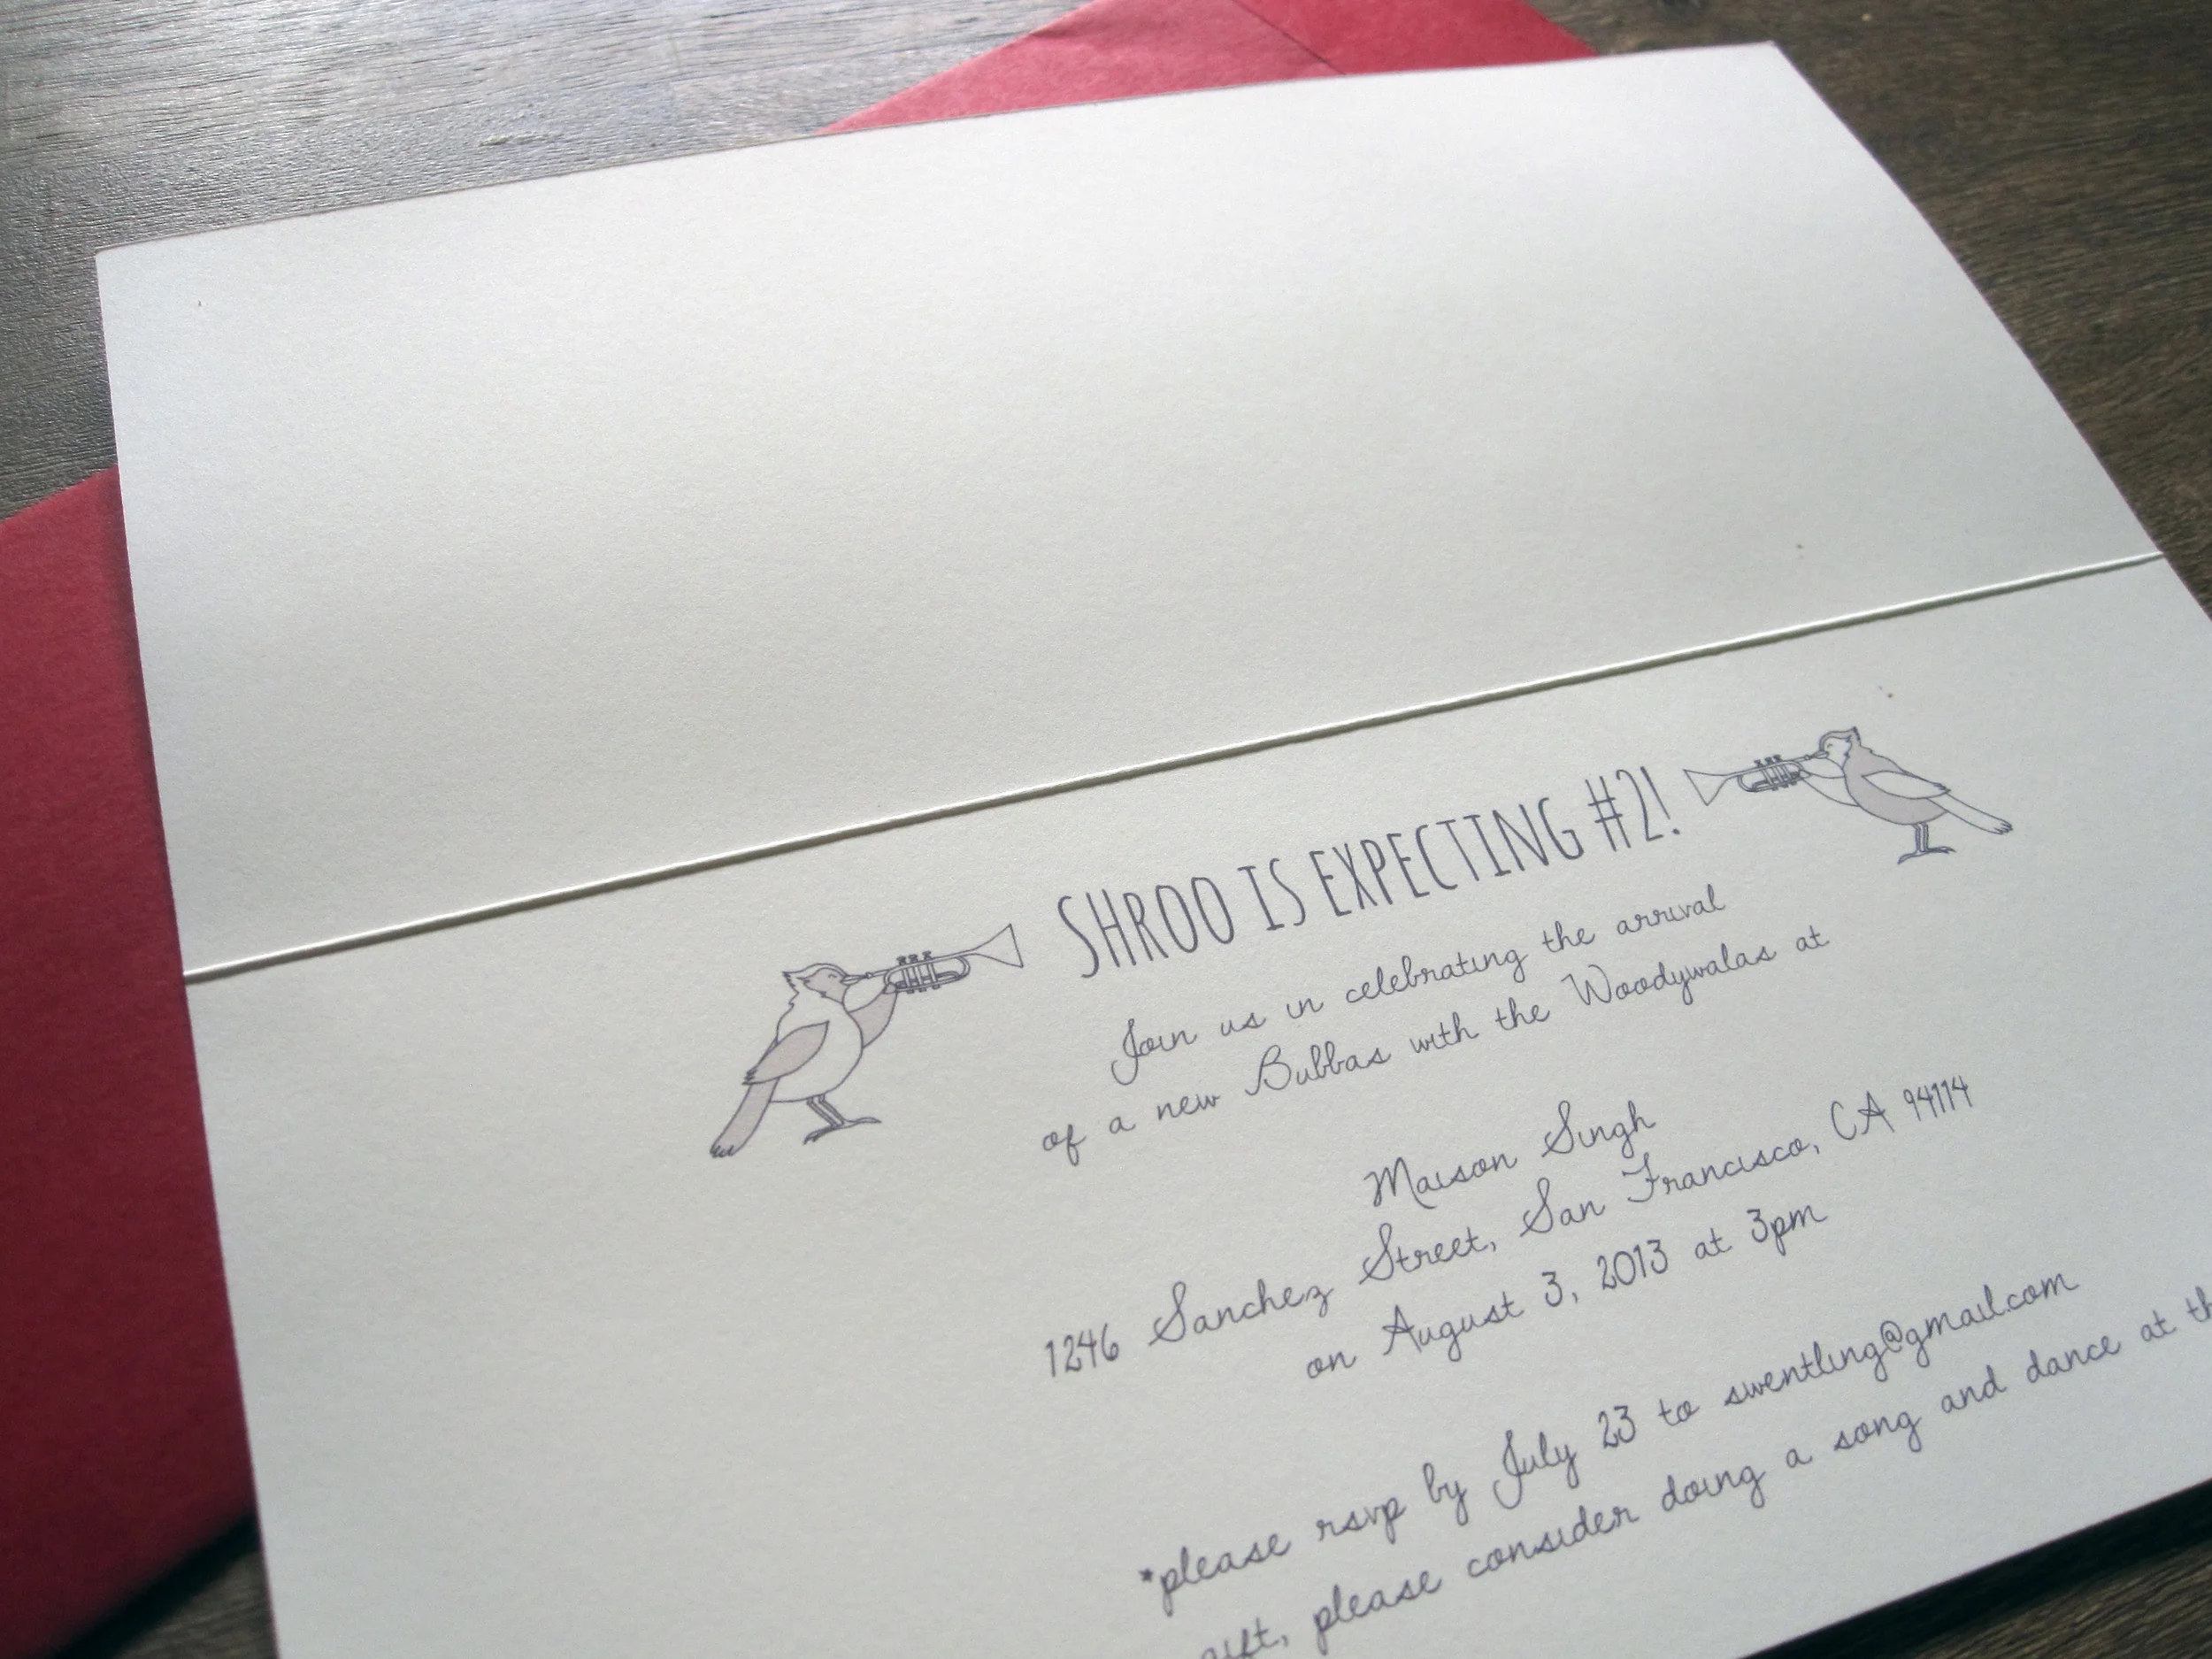 SHROO IS EXPECTING #2!
Join us in celebrating the arrival
of a new Bubbas with the Woodywalas at
Maison Singh
1246 Sanchez Street, San Francisco, CA 94114
on August 3, 2013 at 3pm
*please rsvp by July 23 to swentling@gmail.com
gift, please consider doing a song and dance at